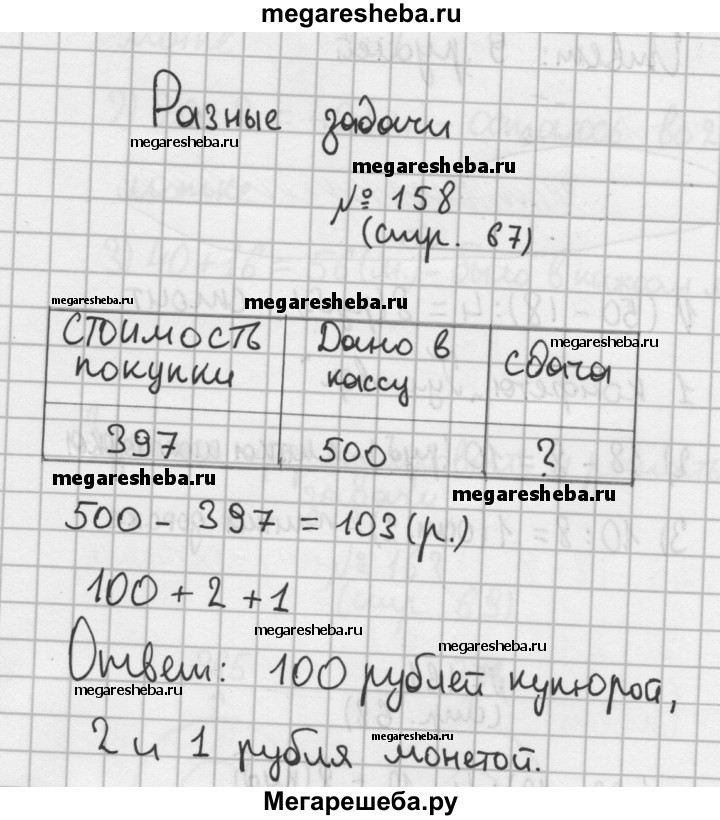 megaresheba.ru
Разные задачи
megaresheba.ru
megaresheba.ru
megaresheba.ru
№ 158
(стр. 67)
megaresheba.ru megaresheba.ru
megaresheba.ru
Стоимость покупки | Дано в кассу | сдача
megaresheba.ru
397 | 500 | ?
megaresheba.ru megaresheba.ru
500 - 397 = 103 (р.)
megaresheba.ru
100 + 2 + 1
megaresheba.ru
megaresheba.ru
Ответ: 100 рублей купюрой,
megaresheba.ru
megaresheba.ru
2 и 1 рубля монетой.
Мегарешеба.ру